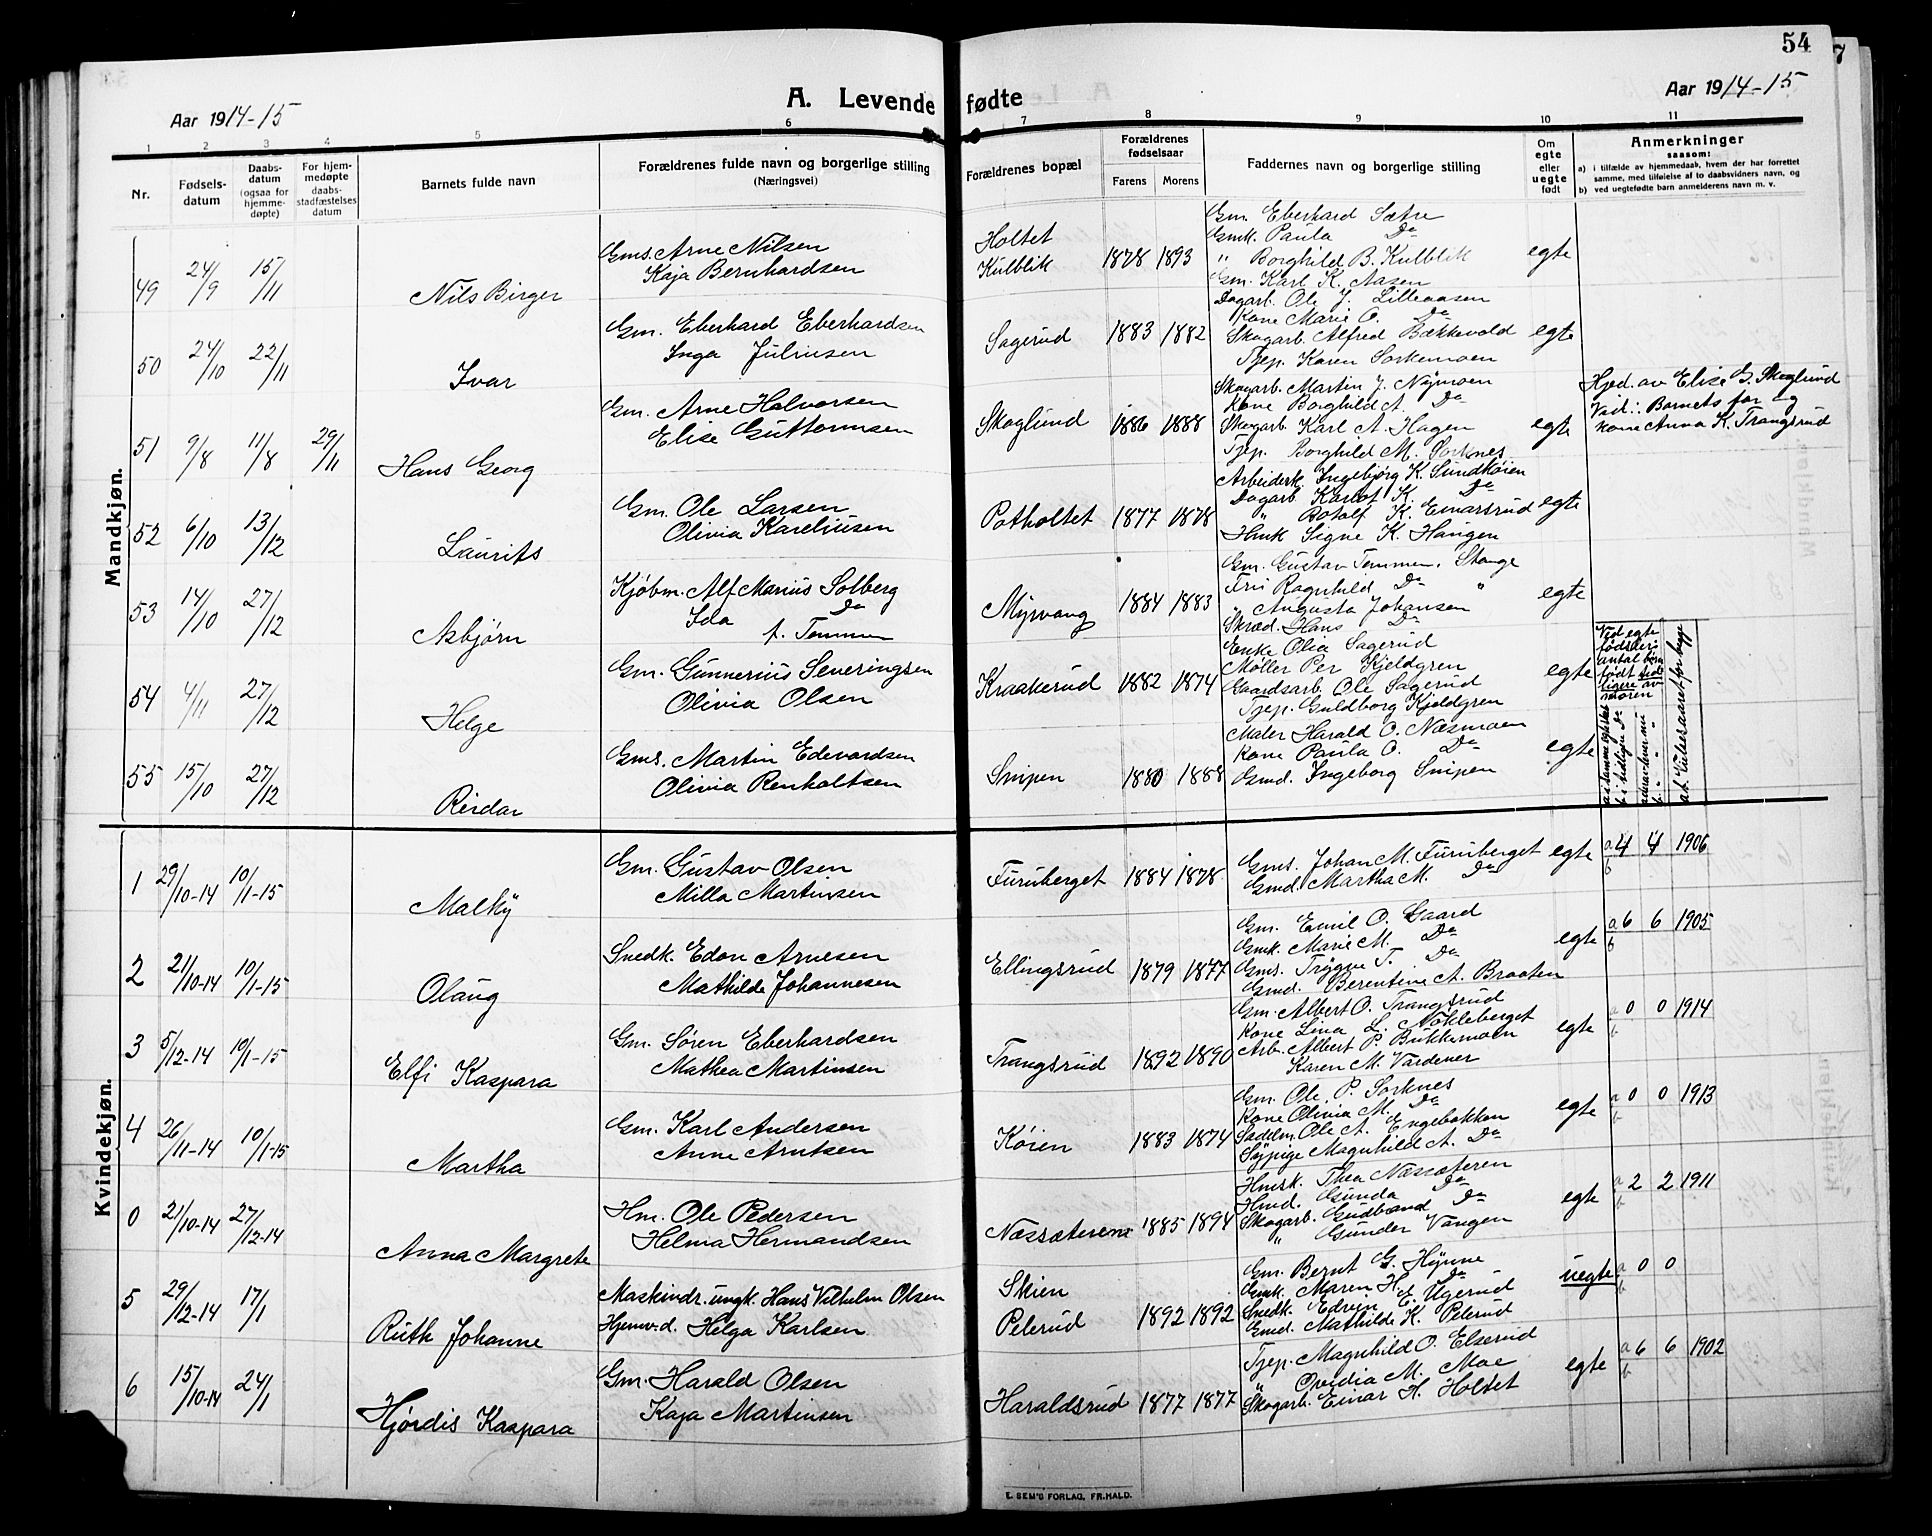 54
7
Aar 1914-15
A. Levende fødte
Aar 1914-15
1 2 3 4 5 6 7 8 9 10 11
Nr.
Fødsels-datum
Daabs-datum (ogsaa for hjemme-døpte)
For hjem-medøpte daabs-stadfæstelses datum
Barnets fulde navn
Forældrenes fulde navn og borgerlige stilling
(Næringsvei)
Forældrenes bopæl
Forældrenes fødselsaar
Farens Morens
Faddernes navn og borgerlige stilling
Om egte eller uegte født
Anmerkninger
saasom:
a) i tilfælde av hjemmedaab, hvem der har forrettet samme, med tilføielse af to daabsvidners navn, og
b) ved uegtefødte barn anmelderens navn m. v.
Mandkjøn.
49 24/9 15/11 Nils Birger
Gms. Arne Nilsen
Kaja Bernhardsen
Holtet
Kulblik 1878 1893
Gm. Eberhard Sætre
Gmk. Paula Do
" Borghild B. Kulblik
Gm. Karl K. Aasen
egte
50 24/10 22/11 Ivar
Gm. Eberhard Eberhardsen
Inga Juliusen
Sagerud 1883 1882
Dagarb. Ole J. Lilleaasen
Kone Marie O. Do
Skogarb. Alfred Bækkevold
Tjep. Karen Sorkemoen
egte
51 9/8 11/8 29/11 Hans Georg
Gm. Arne Halvorsen
Elise Guttormsen
Skoglund 1886 1888
Skogarb. Martin J. Nymoen
Kone Borghild A. Do
Skogarb. Karl A. Hagen
Tjep. Borghild M. Sorknes
egte
Hjed. av Elise G. Skoglund
Vid.: Barnets far og
kone Anna K. Trangsrud
52 6/10 13/12 Laurits
Gm. Ole Larsen
Olivia Kareliusen
Potholtet 1877 1878
Arbeiderk. Ingebjørg K. Sundkøien
Dagarb. Karlof K. Do
" Botolf K. Einarsrud
Hmk Signe K. Haugen
egte
53 14/10 27/12 Asbjørn
Kjøbm. Alf Marius Solberg
Ida Do
f. Tommen
Myrvang 1884 1883
Gm. Gustav Tommen, Stange
Fru Ragnhild Do "
" Augusta Johansen
Skræd. Hans Do
egte
54 4/11 27/12 Helge
Gm. Gunnerius Severingsen
Olivia Olsen
Kraakerud 1882 1874
Enke Olia Sagerud
Møller Per Kjeldgren
Gaardsarb. Ole Sagerud
Tjep. Guldborg Kjeldgren
egte
55 15/10 27/12 Reidar
Gms. Martin Edevardsen
Olivia Renholtsen
Snipen 1880 1888
Maler Harald O. Næsmoen
Kone Paula O. Do
Gmd. Ingeborg Snipen
egte
Ved egte
fødsler:
antal børn
født tid-
ligere av
moren
Kvindekjøn.
1 29/10-14 10/1-15 Malky
Gm. Gustav Olsen
Milla Martinsen
Furuberget 1884 1878
Gms. Johan M. Furuberget
Gmd. Martha M. Do
egte a 4 4 1906
b
2 21/10-14 10/1-15 Olaug
Snedk. Edon Arnesen
Mathilde Johannesen
Ellingsrud 1879 1877
Gm. Emil O. Gaard
Gmk. Marie M. Do
Gms. Trygve T. Do
Gmd. Berentine A. Braaten
egte a 6 6 1905
b
3 5/12-14 10/1-15 Elfi Kaspara
Gm. Søren Eberhardsen
Mathea Martinsen
Trangsrud 1892 1890
Gm. Albert O. Trangsrud
Kone Lina L. Nøkleberget
Arb. Albert P. Bukkemoen
Karen M. Vardener
egte a 0 0 1914
b
4 26/11-14 10/1-15 Martha
Gm. Karl Andersen
Anne Arntsen
Køien 1883 1874
Gm. Ole P. Sorknes
Kone Olivia M. Do
Sadelm. Ole A. Engebakken
Sypige Magnhild A. Do
egte a 0 0 1913
b
0 21/10-14 27/12-14 Anna Margrete
Hm. Ole Pedersen
Helma Hermandsen
Næssæterene 1885 1894
Hmsk. Thea Næssæteren
Hmd. Gunda Do
Skogarb. Gudband Do
" Gunder Vangen
egte a 2 2 1911
b
5 29/12-14 17/1 Ruth Johanne
Maskindr. ungk. Hans Vilhelm Olsen
Hjemv.d. Helga Karlsen
Skien
Pelerud 1892 1892
Gm. Bernt G. Hynne
Gmk. Maren H. Do
Snedk. Edvin E. Ugerud
Gmd. Mathilde K. Pelerud
uegte a 0 0
b
6 15/10-14 24/1 Hjørdis Kaspara
Gm. Harald Olsen
Kaja Martinsen
Haraldsrud 1877 1877
Tjep. Magnhild O. Elserud
" Ovidia M. Moe
Skogarb. Einar H. Holtet
egte a 6 6 1902
b
E. SEM'S FORLAG, FR.HALD.